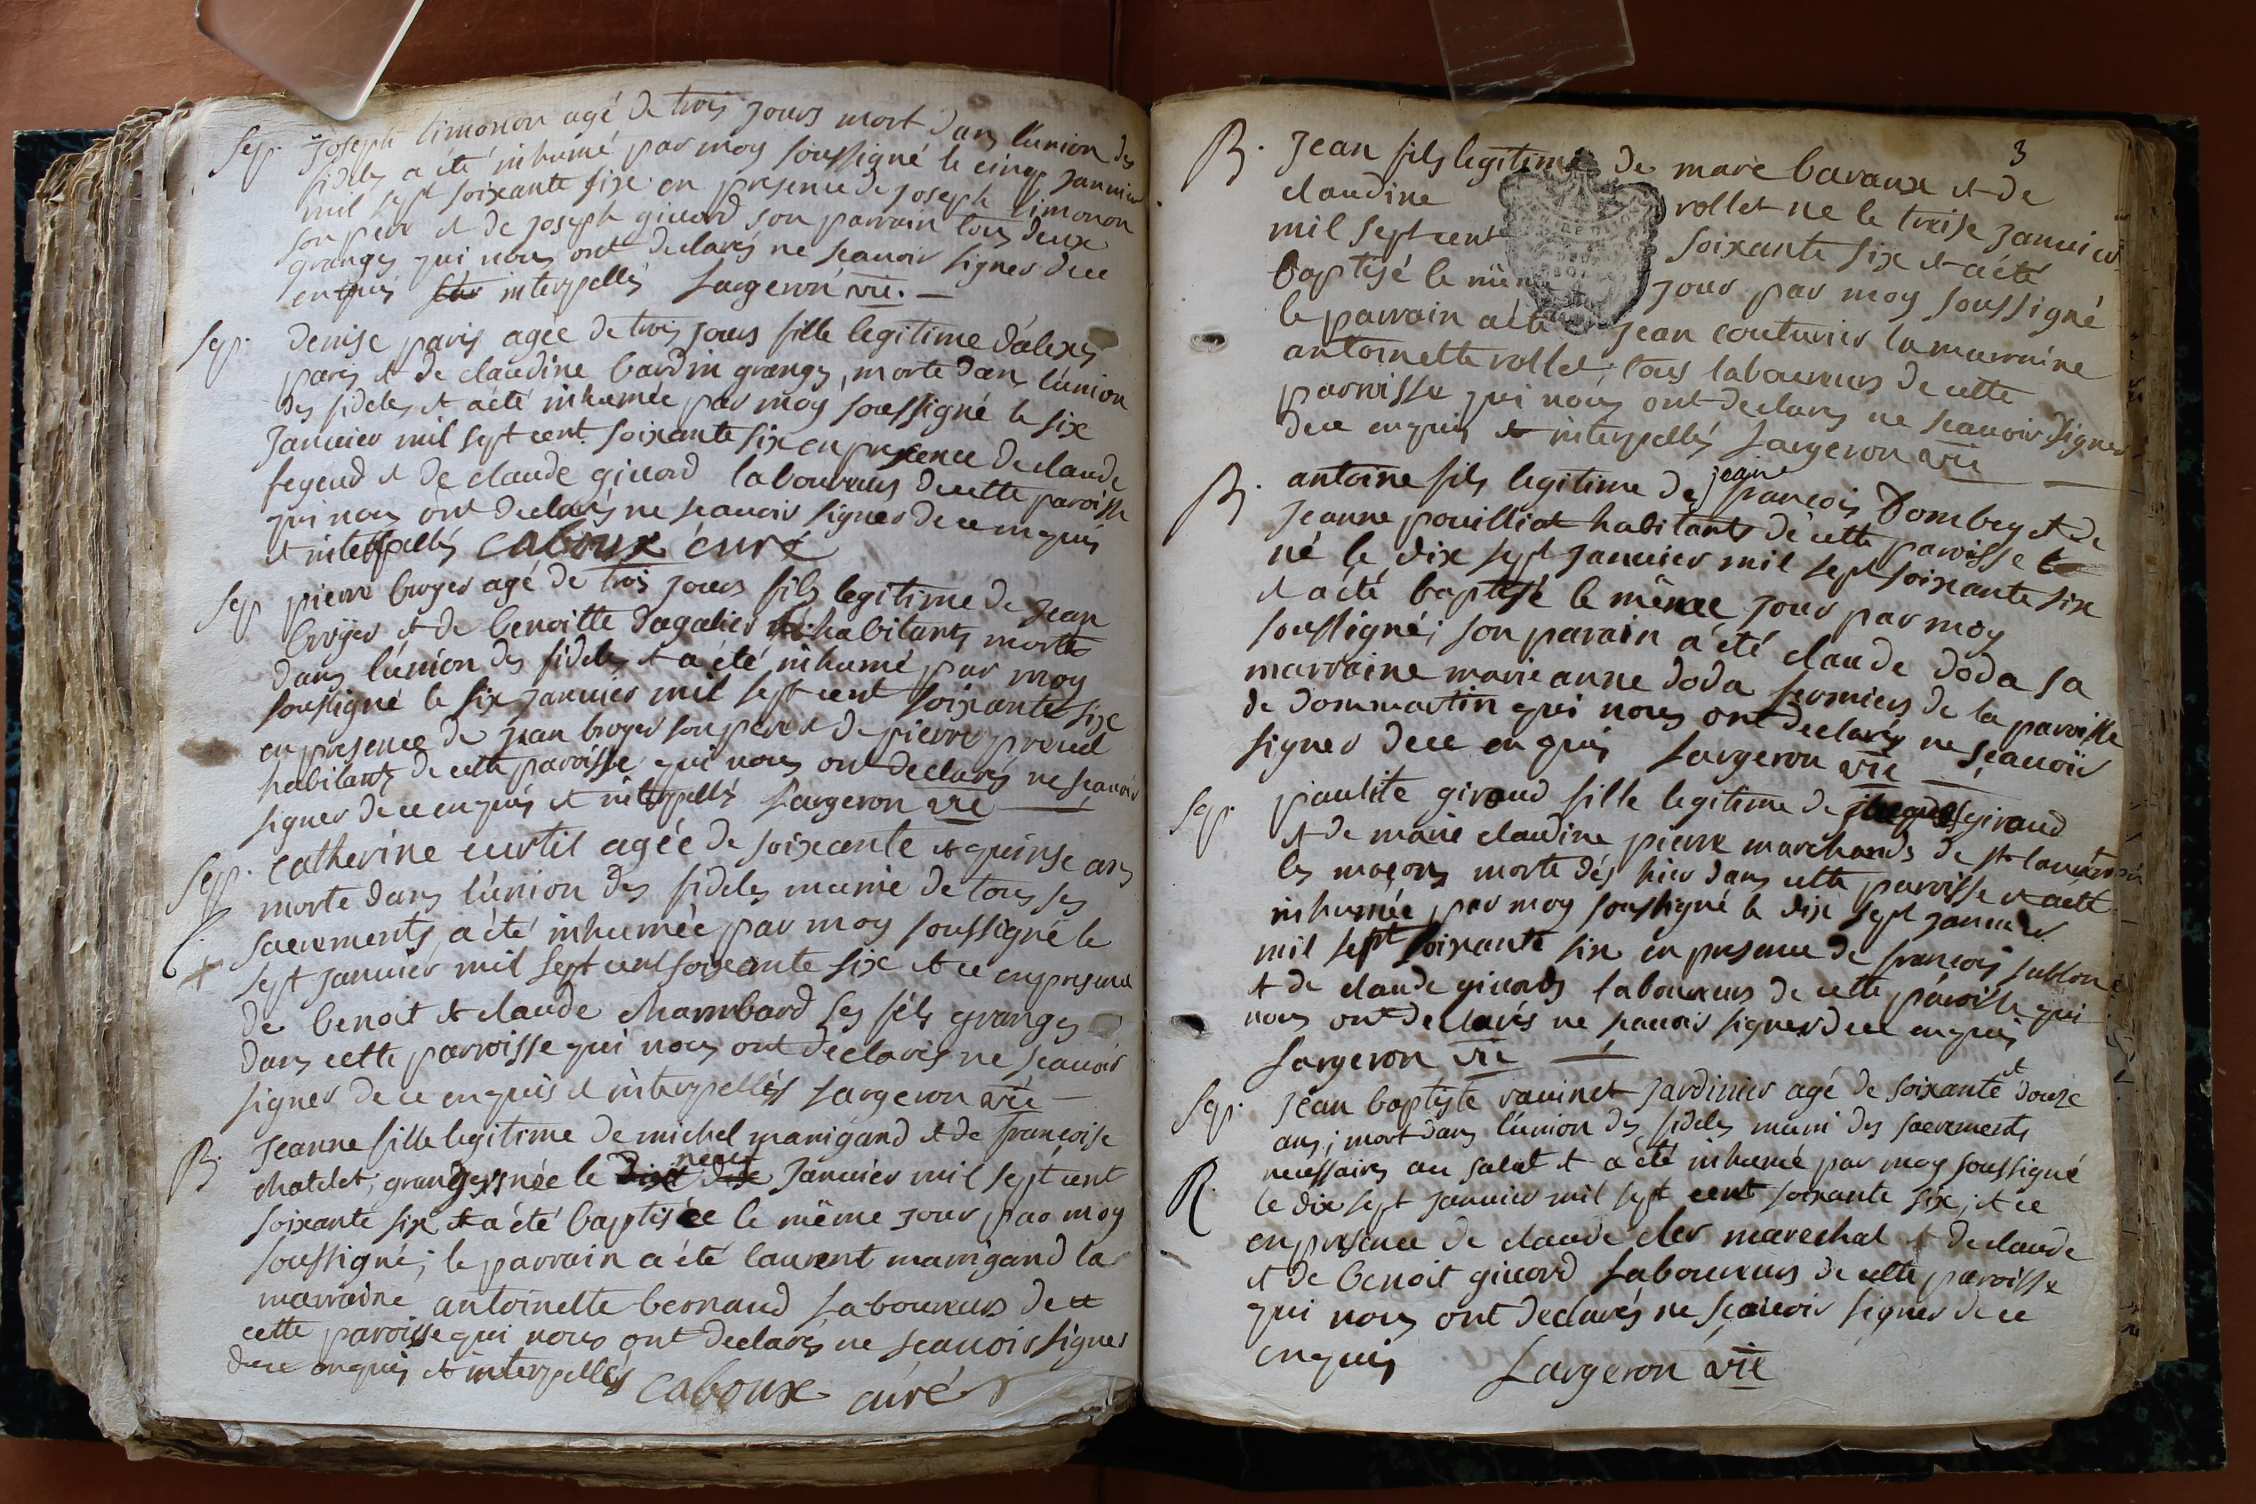 Sep. Joseph limonon agé de trois jours mort dans l'union des
fideles a été inhumé par moy soussigné le cinq janvier
mil sept soixante six en presence de joseph limonon
son pere et de joseph giccard son parrain tous deux
grangers qui nous ont declarés ne scavoir signer de ce
enquis interpellés Largeron vic. —
Sep. denise paris agée de trois jours fille legitime d'alexis
paris et de claudine bardin grangers, morte dans l'union
des fideles et a été inhumée par moy soussigné le six
janvier mil sept cent soixante six en presence de claude
feyeud et de claude giccard laboureurs de cette paroisse
qui nous ont declarés ne scavoir signer de ce enquis
et interpellés caboux curé
Sep pierre broyer agé de trois jours fils legitime de jean
broyer et de benoitte dagalier habitants morte
dans l'union des fideles et a été inhumé par moy
soussigné le six janvier mil sept cent soixante six
en presence de jean broyer son pere et de pierre preud
habitants de cette paroisse qui nous ont declarés ne scavoir
signer de ce enquis et interpellés Largeron vic —
Sep. catherine curtil agée de soixante et quinse ans
morte dans l'union des fideles munie de tous ses
sacrements, a été inhumée par moy soussigné le
sept janvier mil sept cent soixante six et ce en presence
de benoit et claude chambard ses fils grangers
dans cette parroisse qui nous ont declarés ne scavoir
signer de ce enquis et interpellés Largeron vic —
B. jeanne fille legitime de michel manigand et de françoise
neuf
chatelet, grangers née le dix janvier mil sept cent
soixante six et a été baptisée le même jour par moy
soussigné; le parrain a été laurent manigand la
marraine antoinette bernaud laboureurs de
cette paroisse qui nous ont declarés ne scavoir signer
de ce enquis et interpellés caboux curé
3
B. Jean fils legitime de marc bavoux et de
claudine rollet ne le treise janvier
mil sept cent soixante six et a été
baptisé le même jour par moy soussigné
le parrain a été jean couturier la marraine
antoinette rollet, tous laboureurs de cette
parroisse qui nous ont declarés ne scavoir signer
de ce enquis et interpellés Largeron vic —
jean
B. antoine fils legitime de françois Dombey et de
jeanne pouilliat habitants de cette paroisse
né le dix sept janvier mil sept soixante six
et a été baptisé le même jour par moy
soussigné; son parain a été claude doda sa
marraine marie anne doda fermiers de la paroisse
de dommartin qui nous ont declarés ne scavoir
signer de ce enquis Largeron vic —
Sep. paulite giraud fille legitime de giraud
et de marie claudine pierre marchands de st laurent
les maçon, morte dés hier dans cette paroisse et a été
inhumée par moy soussigné le dix sept janvier
mil sept soixante six en presence de françois sublon
et de claude giccard laboureurs de cette paroisse qui
nous ont declarés ne scavoir signer de ce enquis
Largeron vic —
et
Sep. jean baptiste ravinet jardinier agé de soixante douze
ans; mort dans l'union des fideles muni des sacrements
necessaires au salut et a été inhumé par moy soussigné
R. le dix sept janvier mil sept cent soixante six, et ce
en presence de claude cler marechal et de claude
et de benoit giccard Laboureurs de cette paroisse
qui nous ont declarés ne scavoir signer de ce
enquis Largeron vic